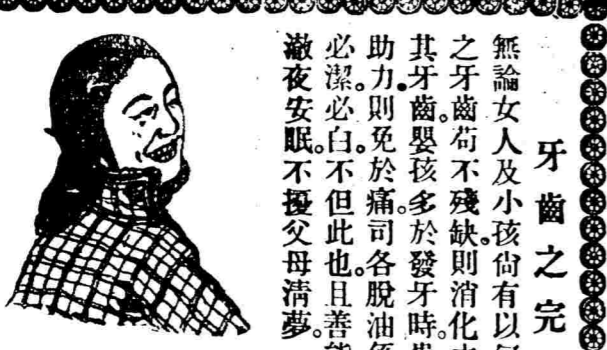 牙齒之完
無論女人及小孩尙有以
之牙齒苟不殘缺。則消化
其牙齒。嬰孩多於發牙時。
助力。則免於痛。司各脫油
必潔。必白。不但此也。且善
澈夜安眠。不擾父母淸夢。